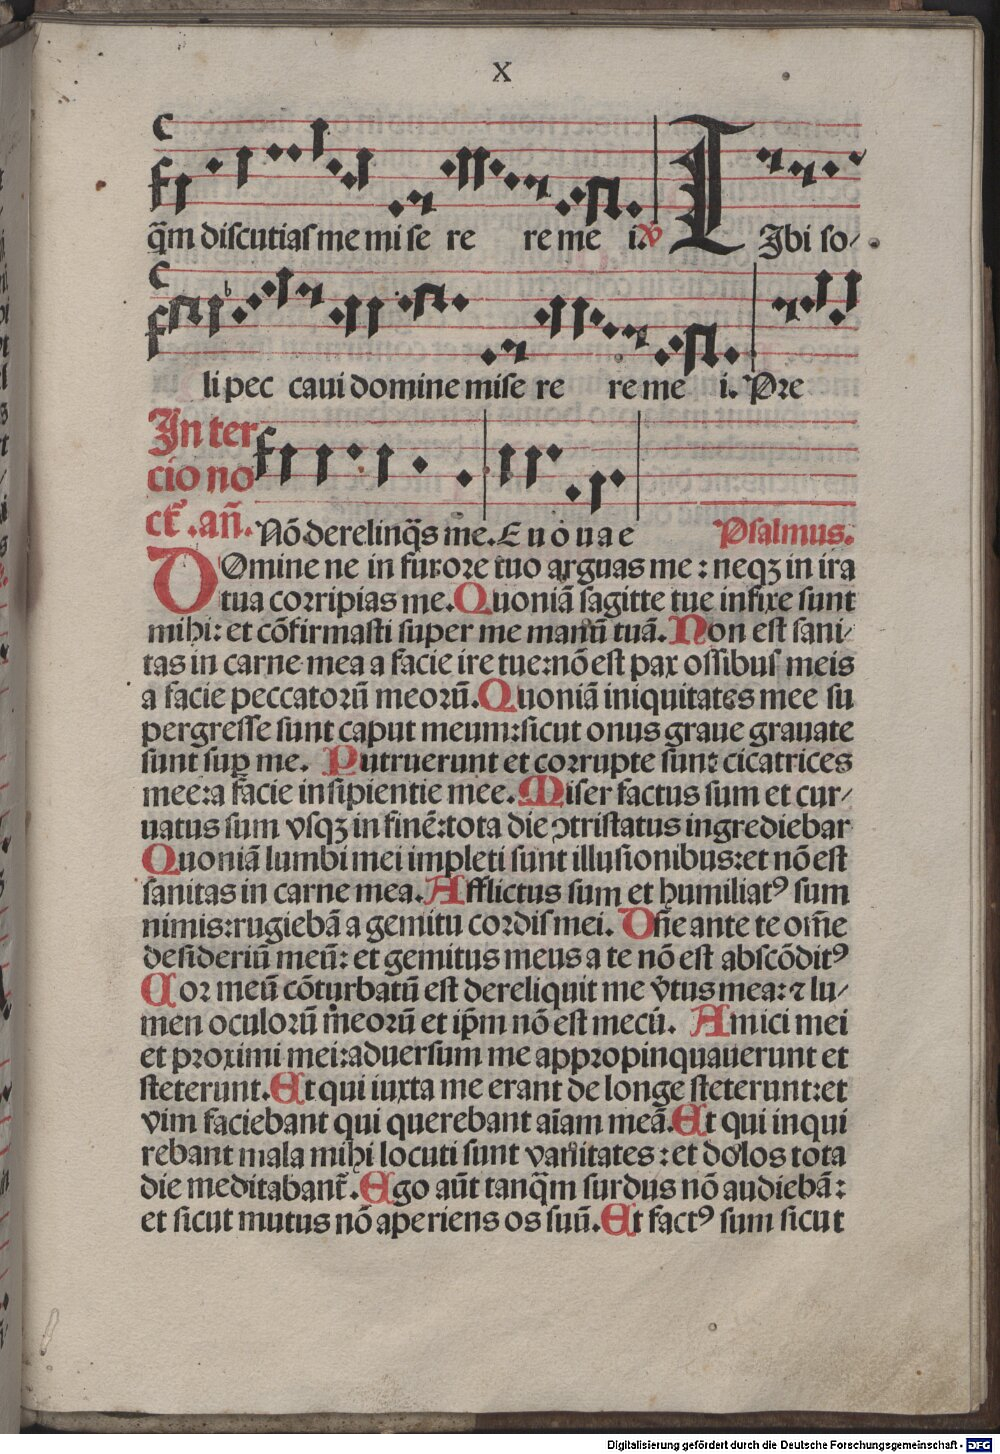 X
q̃m discutias me mi se re re me i. ℣ TIbi so/
li pec caui domine mise re re me i. Pre
In ter
cio no
ct̃. an̄. Nō derelinq̄s me. E u o u a e Psalmus.
DOmine ne in furore tuo arguas me: neqꝫ in ira
tua corripias me. Quoniā sagitte tue infixe sunt
mihi: et cōfirmasti super me manū tuā. Non est sani/
tas in carne mea a facie ire tue: nō est pax ossibus meis
a facie peccatorū meorū. Quoniā iniquitates mee su
pergresse sunt caput meum: sicut onus graue grauate
sunt suꝑ me. Putruerunt et corrupte sunt cicatrices
mee: a facie insipientie mee. Miser factus sum et cur/
uatus sum vsqꝫ in finē: tota die ↄtristatus ingrediebar
Quoniā lumbi mei impleti sunt illusionibus: et nō est
sanitas in carne mea. Afflictus sum et humiliatꝰ sum
nimis: rugiebā a gemitu cordis mei. Dn̄e ante te om̄e
desideriū meū: et gemitus meus a te nō est abscōditꝰ
Cor meū cōturbatū est dereliquit me v̓tus mea: ⁊ lu/
men oculorū meorū et ip̄m nō est mecū. Amici mei
et proximi mei: aduersum me appropinquauerunt et
steterunt. Et qui iuxta me erant de longe steterunt: et
vim faciebant qui querebant aīam meā. Et qui inqui
rebant mala mihi locuti sunt vanitates: et dolos tota
die meditabant̃. Ego aūt tanq̄m surdus nō audiebā:
et sicut mutus nō aperiens os suū. Et factꝰ sum sicut
Digitalisierung gefördert durch die Deutsche Forschungsgemeinschaft - DFG